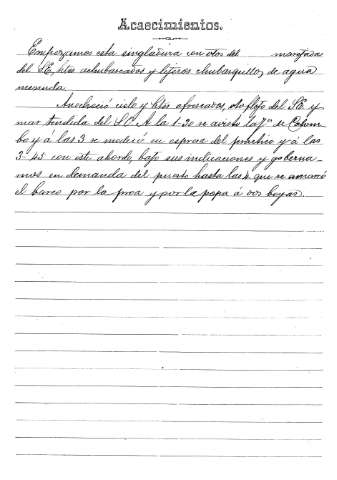 Acaecimientos.
Empezamos esta singladura con viento del marejada
del SE, htes achubascados y ligeros chubasquillos de agua
menuda.
Anocheció cielo y htes aforscados, vto flojo del SE y
mar tendida del SE. A la 1-30 se avistó la f de Colom
bo y á las 3 se moderó en espera del práctico y á las
3-45 con este abordo, bajo sus indicaciones y goberna-
mos en demanda del puerto hasta las 4 que se amarró
el barco por la proa y por la popa á dos boyas.